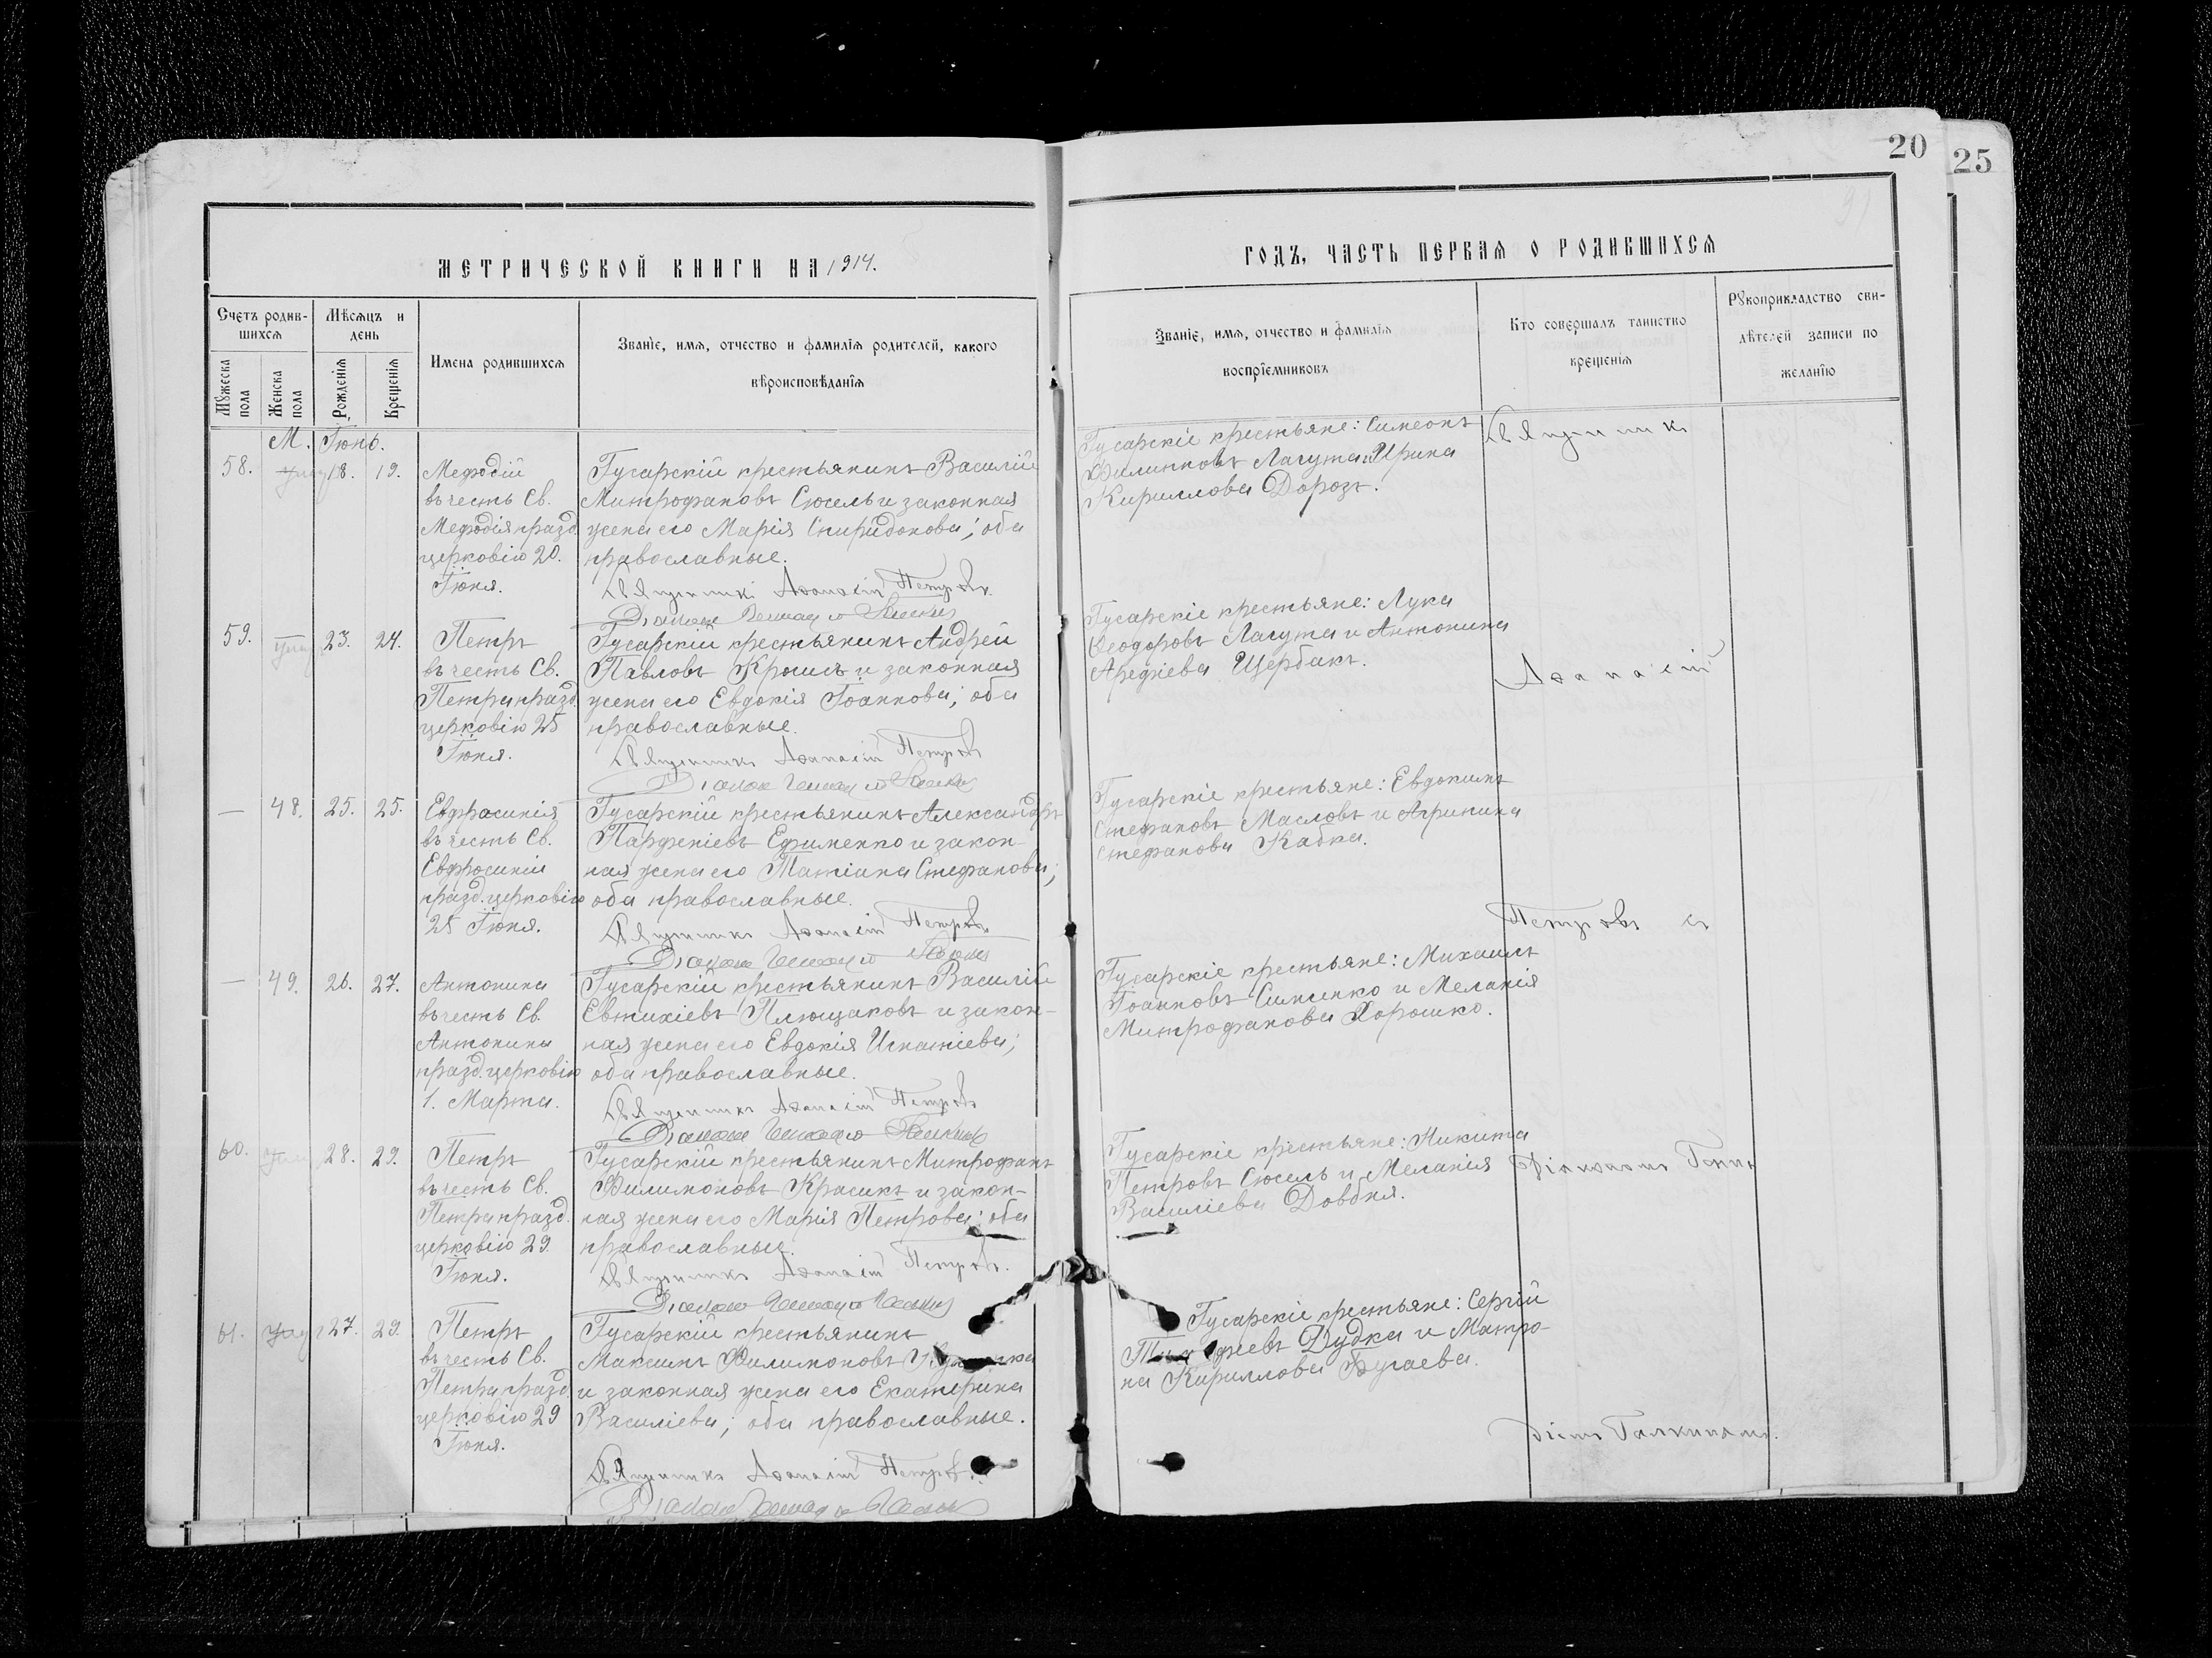 20
25
МЕТРИЧЕСКОЙ КНИГИ НА 1914.
ГОДЪ, ЧАСТЬ ПЕРВАѦ О РОДИВШИХСѦ
Счетъ родив-
шихсѧ
Мѣсѧцъ и
день
Мꙋжеска
пола
Женска
пола
Рожденіѧ
Крещеніѧ
Имена родившихсѧ
Званїе, имѧ, отчество и фамилїѧ родителей, какого
вѣроисповѣданїѧ
Званїе, имѧ, отчество и фамилїѧ
воспрїемниковъ
Кто совершалъ таинство
крещенїѧ
Рꙋкоприкладство сви-
дѣтелей записи по
желанїю
М. Іюнь.
58. 18. 19.
Меѳодій
въ честь Св.
Меѳодія празд.
церковію 20.
Іюня.
Гусарскій крестьянинъ Василій
Митрофановъ Сюсель и законная
жена его Марія Спиридонова; оба
православные.
Священникъ Аѳанасій Петровъ.
Гусарскіе крестьяне: Симеонъ
Филипповъ Лагута и Ирина
Кириллова Дорозъ.
Священникъ
59. 23. 24.
Петръ
въ честь Св.
Петра празд.
церковію 25
Іюня.
Гусарскій крестьянинъ Андрей
Павловъ и законная
жена его Евдокія Іоаннова; оба
православные.
Священникъ Аѳанасій Петровъ
Гусарскіе крестьяне: Лука
Ѳеодоровъ Лагута и Антонина
Щербакъ.
Аѳанасій
— 48. 25. 25.
Евфросинія
въ честь Св.
Евфросиніи
празд. церковію
25 Іюня.
Гусарскій крестьянинъ Александръ
Парфеніевъ Ефименко и закон-
ная жена его Татіана Стефанова;
оба православные.
Священникъ Аѳанасій Петровъ
Гусарскіе крестьяне: Евдокимъ
Стефановъ Масловъ и Агрипина
Стефанова Кабка.
Петровъ съ
— 49. 26. 27.
Антонина
въ честь Св.
Антонины
празд. церковію
1. Марта.
Гусарскій крестьянинъ Василій
Евтихіевъ Плющаковъ и закон-
ная жена его Евдокія Игнатіева;
оба православные.
Священникъ Аѳанасій Петровъ
Гусарскіе крестьяне: Михаилъ
Іоанновъ Симченко и Меланія
Митрофанова Хорошко.
60. 28. 29.
Петръ
въ честь Св.
Петра празд.
церковію 29.
Іюня.
Гусарскій крестьянинъ Митрофанъ
Филимоновъ Красикъ и закон-
ная жена его Марія Петрова; оба
православные.
Священникъ Аѳанасій Петровъ.
Гусарскіе крестьяне: Никита
Петровъ Сюсель и Меланія
Василіева Довбня.
61. 27. 29.
Петръ
въ честь Св.
Петра празд.
церковію 29
Іюня.
Гусарскій крестьянинъ
Максимъ Филимоновъ
и законная жена его Екатерина
Василіева; оба православные.
Священникъ Аѳанасій Петровъ.
Гусарскіе крестьяне: Сергій
Дудка и Матро-
на Кириллова Бугаева.